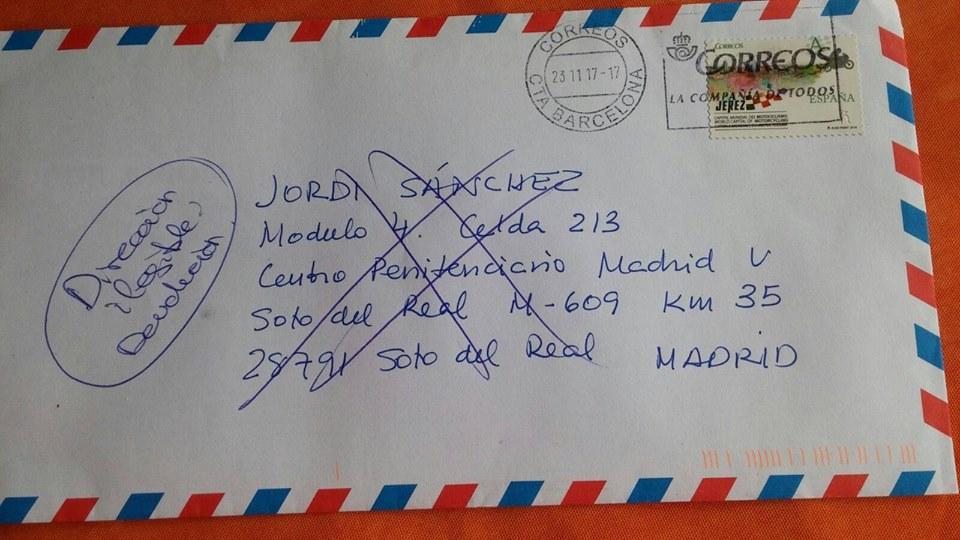 CORREOS
23 11 17-17
CTA BARCELONA
CORREOS
LA COMPAÑIA DE TODOS
CORREOS
A
ESPAÑA
JEREZ
CAPITAL MUNDIAL DEL MOTOCICLISMO
WORLD CAPITAL OF MOTORCYCLING
JORDI SÁNCHEZ
Modulo 4. Celda 213
Centro Penitenciario Madrid V
Soto del Real M-609 Km 35
28791 Soto del Real MADRID
Dirección
ilegible
Devolución